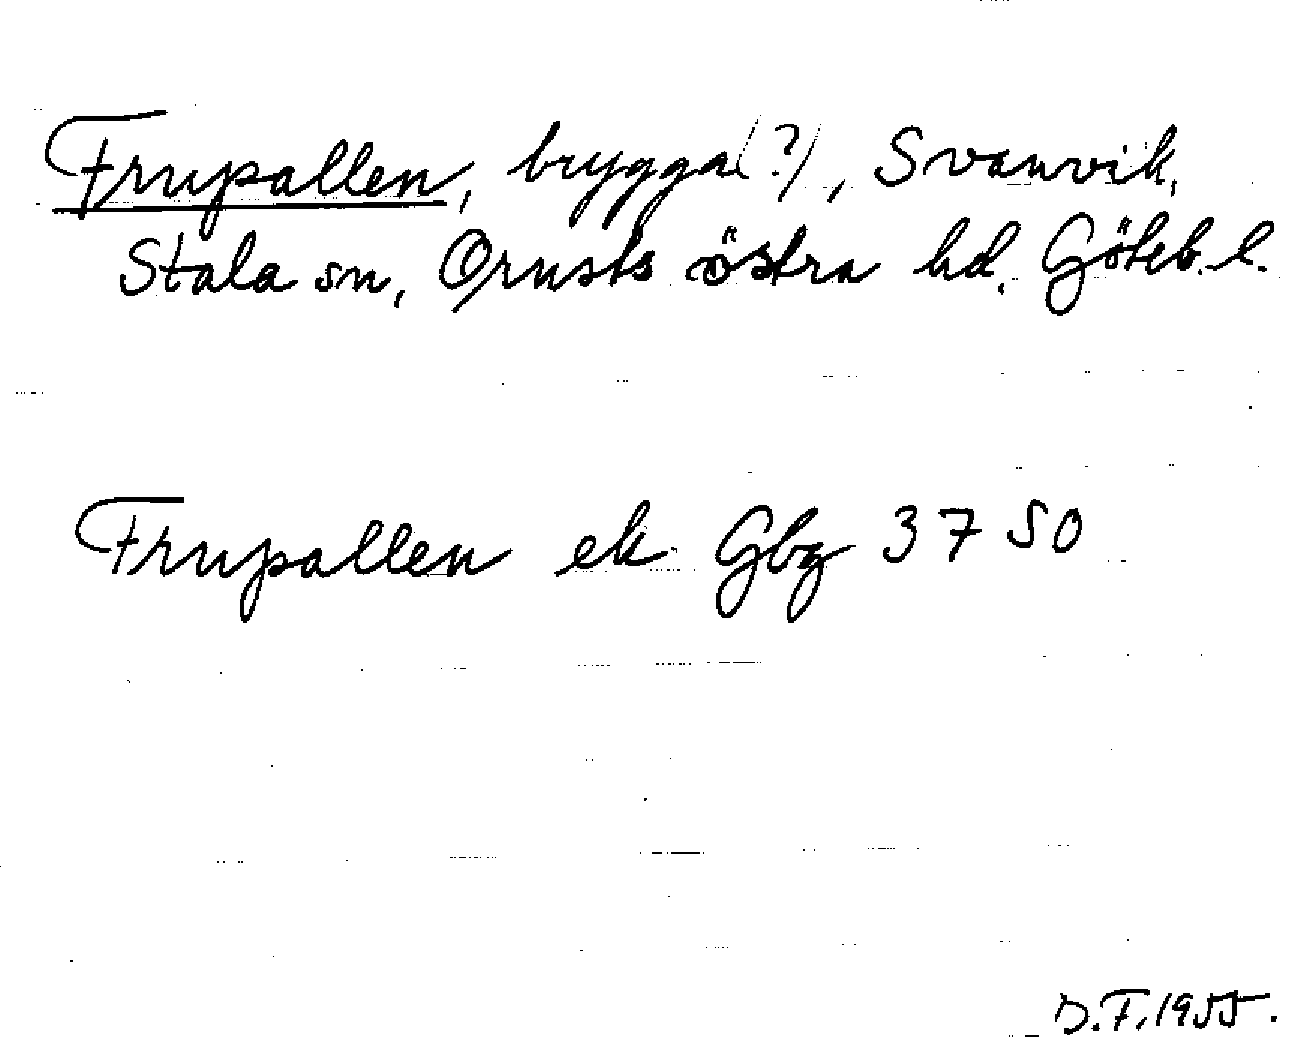 Frupallen, brygga(?), Svanvik,
Stala sn, Orusts östra hd, Göteb. l.
Frupallen ek Gbg 3750
D.F. 1955.